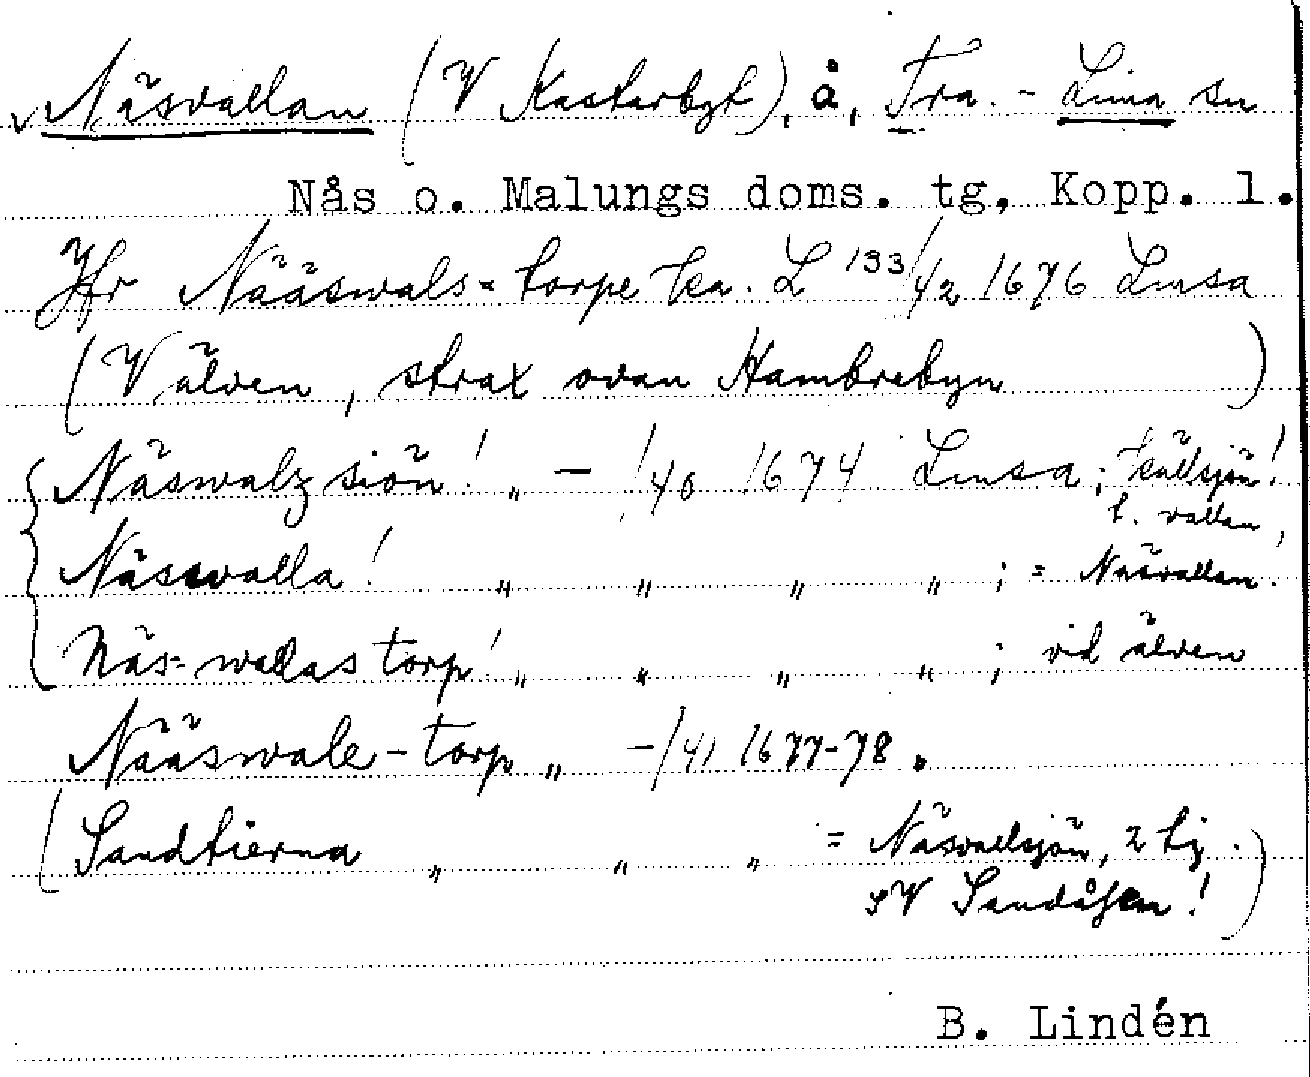 Näsvallan (V Kastarbyt), å, Tra. - Lima sn
Nås o. Malungs doms. tg, Kopp. l.
Jfr Nääswals=torpe ka. L 133/42 1676 Limsa
(V älven, strax ovan Hambrebyn)
Näswalz siön! " - /40 1674 Limsa; källsjön!
t. vallen,
Näswalla! " " " " ; = Näsvallen!
Näs=wallas torp! " " " " ; vid älven
Nääswale-torp " -/41 1677-78 "
(Sandtierna " " " = Näsvallsjön, 2
SV Sandåsen!)
B. Lindén